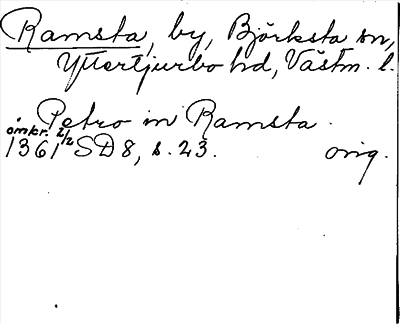 Ramsta, by, Björksta sn,
Yttertjurbo hd, Västm. l.
Petro in Ramsta.
omkr. 2/2
1361 SD 8, s. 23. orig.